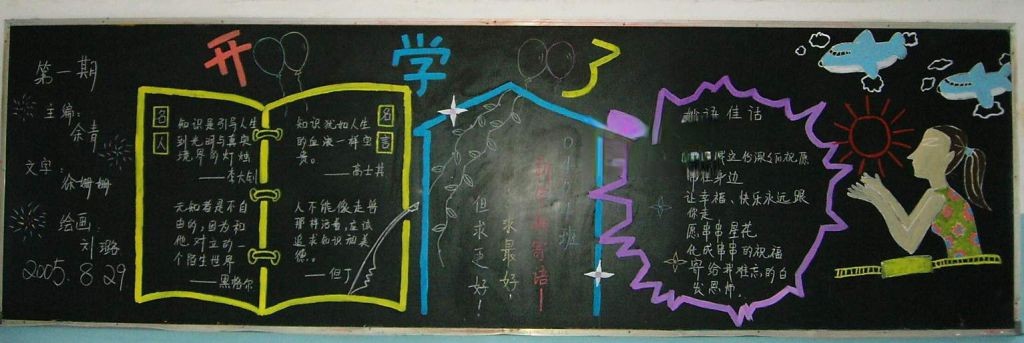 开学了
第一期
主编：
余青
文字：
徐姗姗
绘画：
刘璐
2005.8.29
名人
知识是引导人生
到光明与真实
境界的灯烛
——李大钊
无知者是不自
由的，因为和
他对立的一
个陌生世界
——黑格尔
名言
知识犹如人生
的血液一样宝
贵。
——高士其
人不能像走兽
那样活着，应该
追求知识和美
德。
——但丁
但求更好！
求最好，
寄语
班
佳话
祝愿
身边
让幸福、快乐永远跟
你走
愿串串星花
化成串串的祝福
寄给我难忘的白
发恩师。